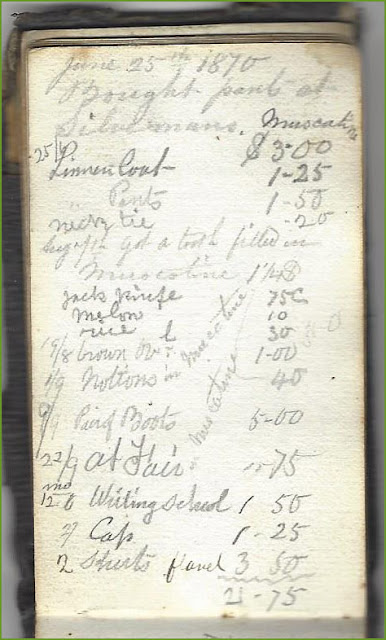 June 25th 1870
Bought pants at
Silvermans. Muscatine
25 Linnen Coat $3-00
" Pants 1-25
1-50
neck tie -20
Got a tooth filled in
Muscotine
Jack Knife 75C
Melon 10
rice 30
19/8 brown 1-00
1/9 Nottons in Muscotine 40
9/9 Pair of Boots 5-00
in Muscatine
22/9 at Fair 75
mo
12 Writing School 1 50
Cap 1-25
2 Shirts 3 50
21-75